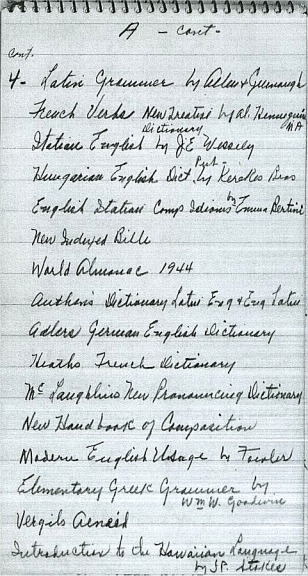 A - cont -
cont.
4- Latin Grammer by Allen & Greenough
French Verbs New Treatise by Al. Hennequin M.A.
Italian English Dictionary by J.E. Wessely
Hungarian English Dict. Pub. by Kerekes Bros
English Italian Comp Idioms by Emma Bertini
New Indexed Bible
World Almanac 1944
Anthon's Dictionary Latin Eng & Eng Latin
Adlers German English Dictionary
Heaths French Dictionary
Mc Laughlins New Pronouncing Dictionary
New Handbook of Composition
Modern English Usage by Fowler
Elementary Greek Grammer by
Wm W. Goodwin
Vergils Aeneid
Introduction to the Hawaiian Language
by J.P. Stokes